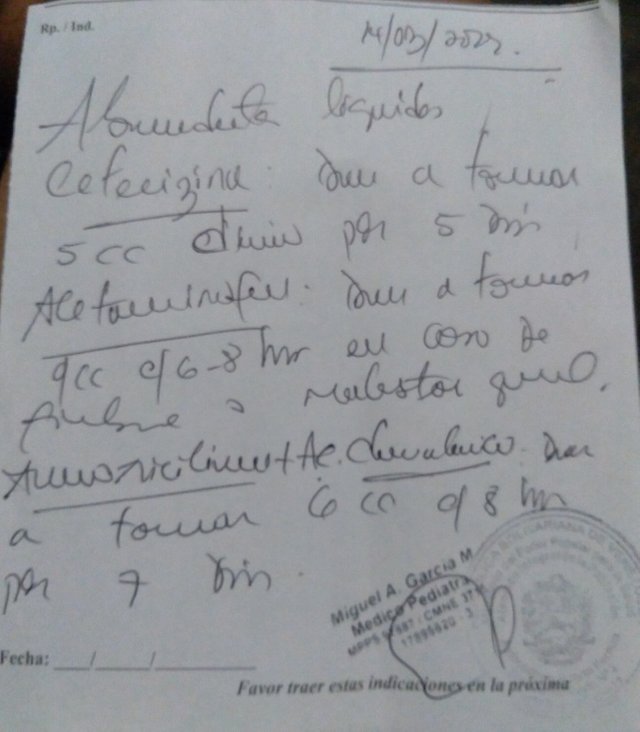 Rp. / Ind.
14/03/2023.
Abundantes líquidos
Cetirizina: Dar a tomar
5 cc diario por 5 días
Acetaminofen: Dar a tomar
9cc c/6-8 hr en caso de
fiebre o malestar gral.
Amoxicilina + Ac. Clavulanico. Dar
a tomar 6 cc c/8 hr
por 7 días.
Miguel A. García M
Medico Pediatra
MPPS CMNE
Fecha: ___/___/______
Favor traer estas indicaciones en la próxima